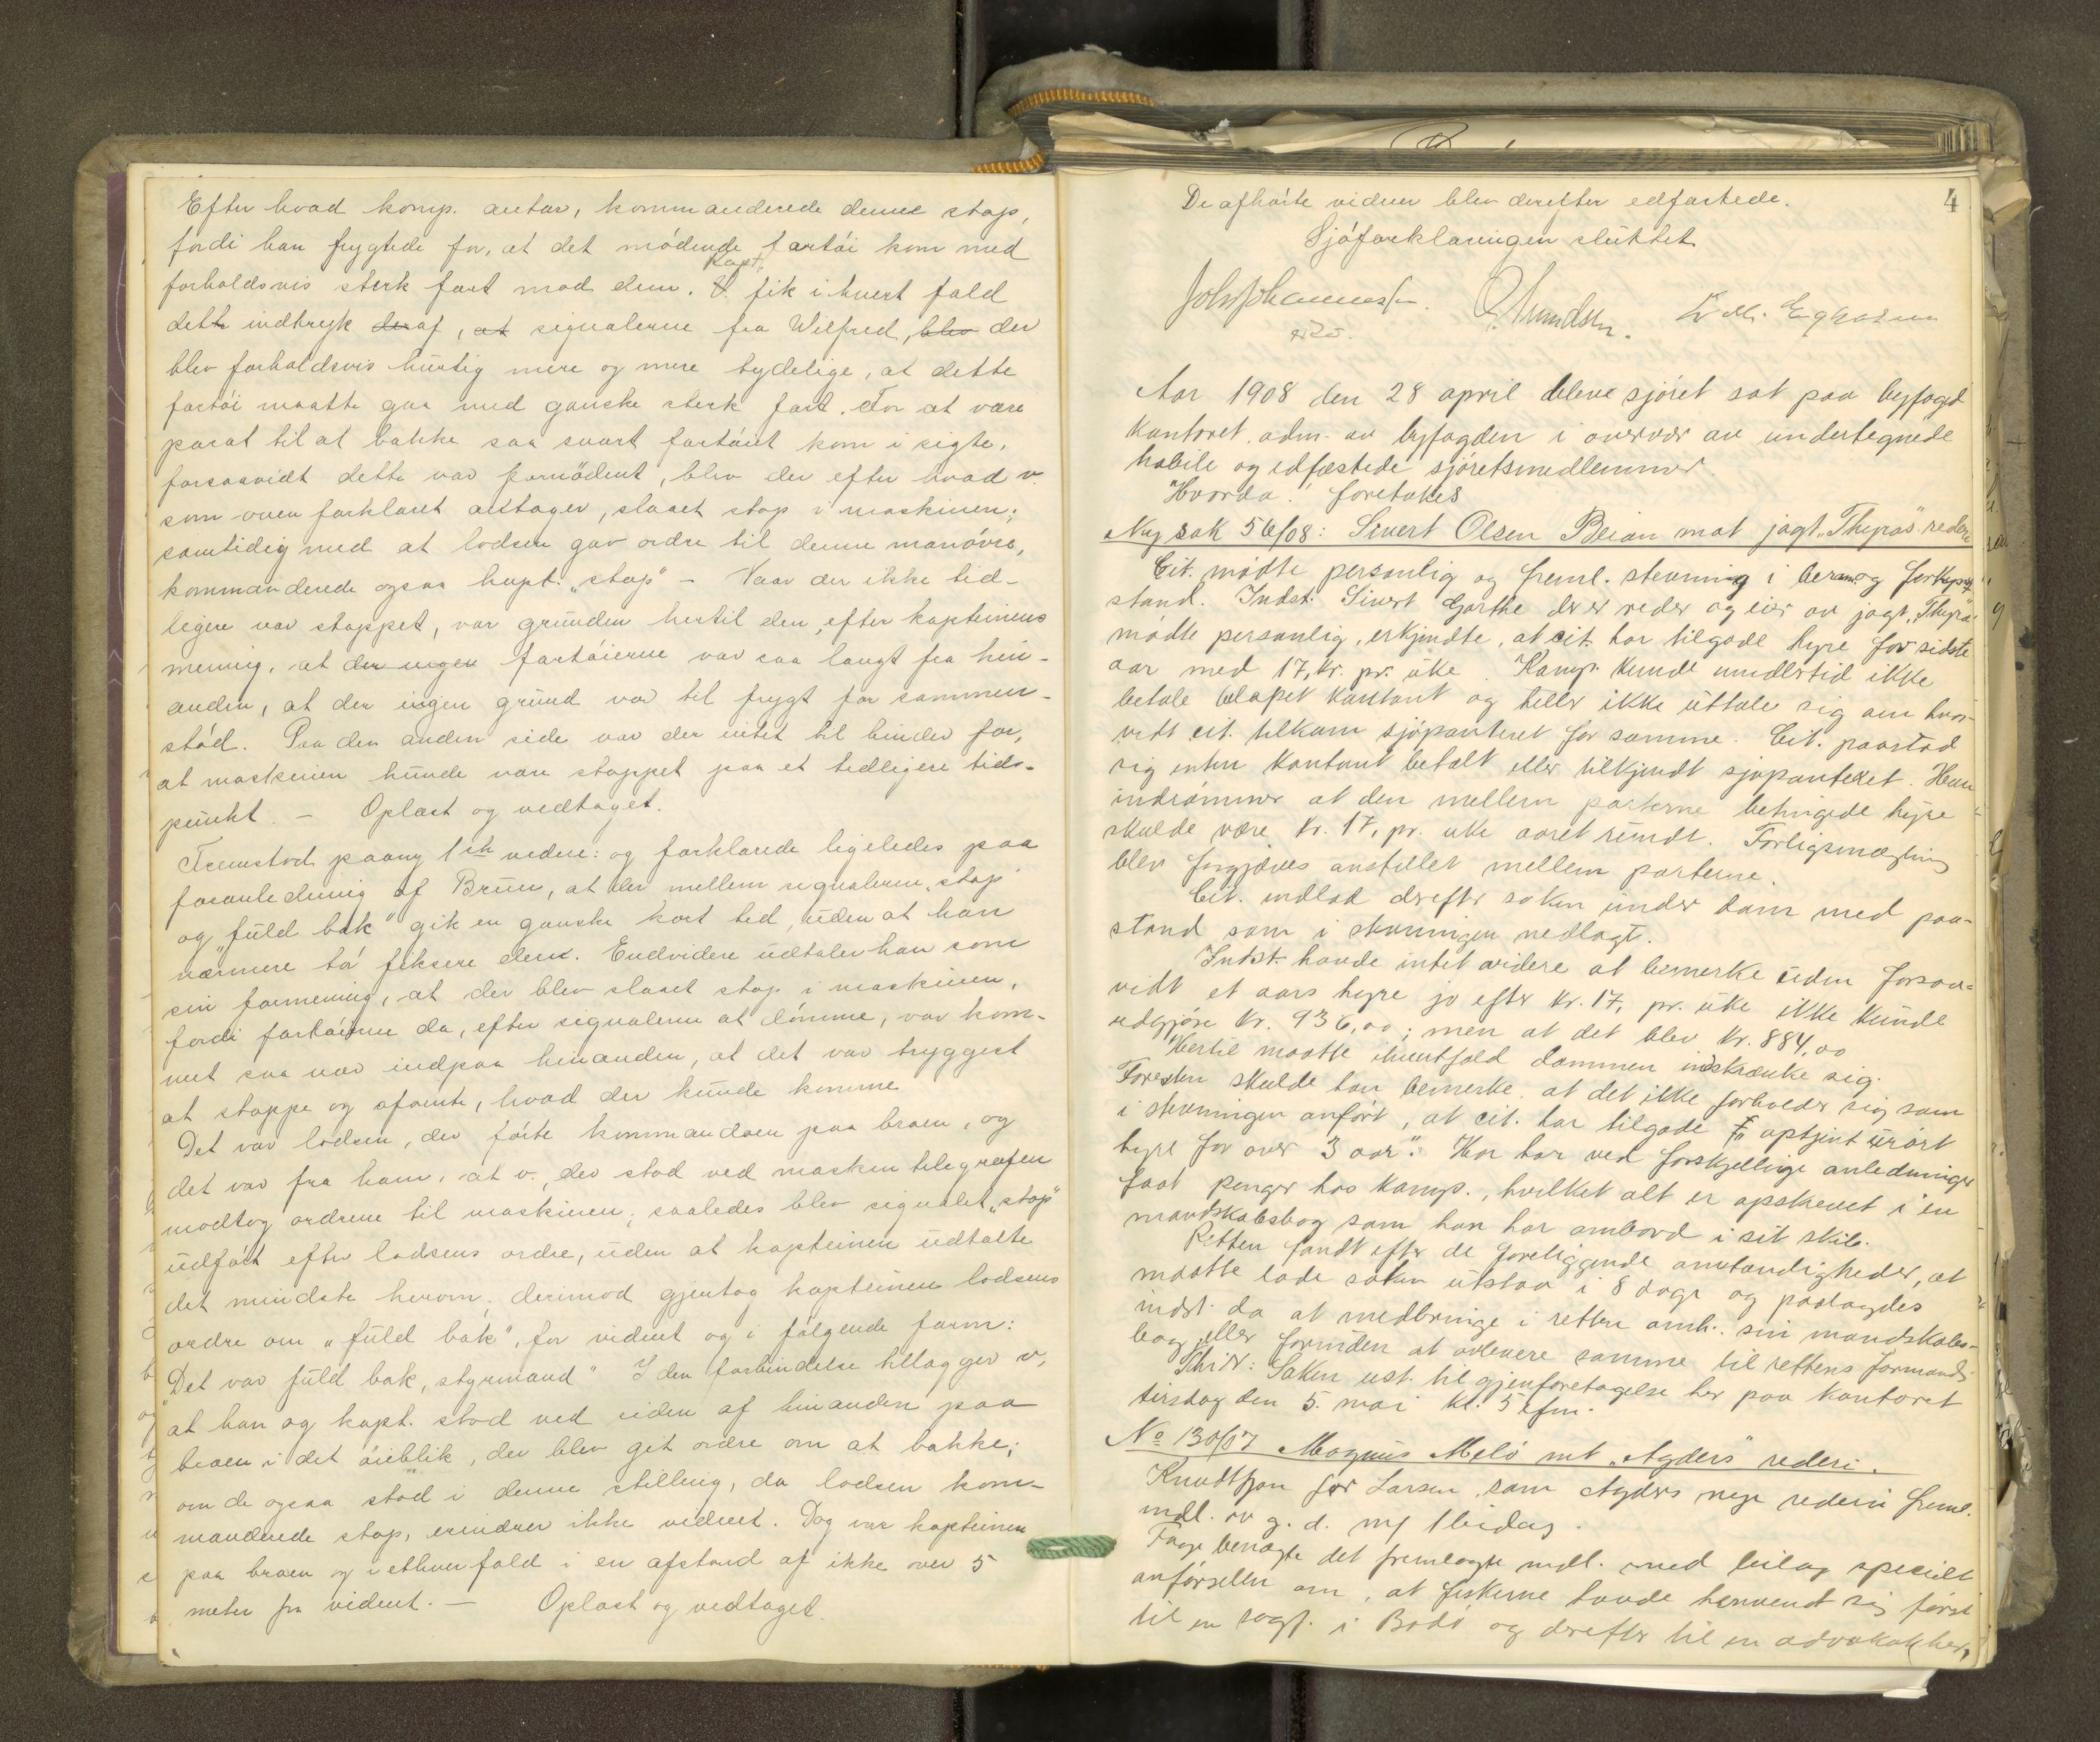 Efter hvad komp. antar, kommanderede denne stop,
fordi han frygtede for, at det mödende fartöi kom med
Kapt.
forholdsvis sterk fart mod dem. V. fik i hvert fald
dette indtryk deraf, at signalerne fra Wilfred, blev der
blev forholdsvis hurtig mere og mere tydelige, at dette
fartöi maatte gaa med ganske sterk fart. For at være
parat til at bakke saa snart fartöiet kom i sigte,
forsaavidt dette var fornödent, blev der efter hvad v.
som oven forklaret antager, slaaet stop i maskinen;
samtidig med at lodsen gav ordre til denne manövre,
kommanderede ogsaa kapt. „stop" – Naar der ikke tid-
ligere var stoppet, var grunden hertil den, efter kapteinens
mening, at der ingen fartöierne var saa langt fra hin-
anden, at der ingen grund var til frygt for sammen-
stöd. Paa den anden side var der intet til hinder for,
at maskinen kunde være stoppet paa et tidligere tids-
punkt. – Oplæst og vedtaget.
Fremstod paany 1ste vidne: og forklarede ligeledes paa
foranledning af Bruun, at der mellem signalerne „stop"
og „fuld bak" gik en ganske kort tid, uden at han
nærmere tör fiksere den. Endvidere udtaler han som
sin formening, at der blev slaaet stop i maskinen,
fordi fartöierne da, efter signalerne at dömme, var kom-
met saa nær indpaa hinanden, at det var tryggest
at stoppe og afvente, hvad der kunde komme
Det var lodsen, der förte kommandoen paa broen, og
det var fra ham, at v., der stod ved maskintelegrafen
modtog ordrene til maskinen; saaledes blev signalet „stop"
udfört efter lodsens ordre, uden at kapteinen udtalte
det mindste herom; derimod gjentog kapteinen lodsens
ordre om „fuld bak", for vidnet og i fölgende form:
„Det var fuld bak, styrmand" I den forbindelse tillægger v,
at han og kapt. stod ved siden af hinanden paa
broen i det öieblik, der blev git ordre om at bakke;
om de ogsaa stod i denne stilling, da lodsen kom-
manderede stop, erindrer ikke vidnet. Dog var kapteinen
paa broen og i ethvert fald i en afstand af ikke over 5
meter fra vidnet. – Oplæst og vedtaget.
4
De afhörte vidner blev derefter edfæstede.
Sjöforklaringen sluttet
Joh Johannessen.
Aar 1908 den 28 april blev sjöret sat paa byfoged
kontoret, adm. av byfogden i overvær av undertegnede
habile og edfæstede sjöretsmedlemmer.
Hvorda: foretokes
Ny sak 56/08: Sivert Olsen Beian mot jagt „Thyras" rederi
Cit. mödte personlig og freml. stevning i beram. og forkynt
stand. Indst. Sivert Garthe der er reder og eier av jagt „Thyra"
mödte personlig, erkjendte, at cit. har tilgode hyre for sidste
aar med 17, kr. pr. uke. Komp. kunde imidlertid ikke
betale belöpet kontant og heller ikke uttale sig om hvor-
vidt cit. tilkom sjöpanteret for samme. Cit. paastod
sig enten kontant betalt eller tilkjendt sjöpanteret. Han
indrömmer at den mellem parterne betingede hyre
skulde være kr. 17, pr. uke aaret rundt. Forligsmægling
blev forgjæves anstillet mellem parterne.
Cit. indlod derefter saken under dom med paa-
stand som i stevningen nedlagt.
Indst. havde intet videre at bemerke uden forsaa-
vidt et aars hyre jo efter kr. 17, pr. uke ikke kunde
udgjöre kr. 936,00; men at det blev kr. 884,00
Hertil maatte ihvertfald dommen indskrænke sig.
Foresten skulde han bemerke, at det ikke forholder sig som
i stevningen anfört, at cit. har tilgode „optjent urört
hyre for over 3 aar". Han har ved forskjellige anledninger
faat penger hos komp., hvilket alt er opskrevet i en
mandskabsbog som han har ombord i sit skib.
Retten fandt efter de foreliggende omstændigheder, at
maatte lade saken utstaa i 8 dage og paalagdes
indst. da at medbringe i retten omh. sin mandskabs-
bog eller forinden at avlevere samme til rettens formand.
Thi: Saken ust. til gjenforetagelse her paa kontoret
tirsdag den 5. mai kl. 5 efm.
No 130/07 Magnus Melö mt „Agders" rederi.
Knudtzon for Larsen, som Agders nye rederi freml.
indl. av g. d. m/ 1 bidag.
Fage benægte det fremlagte indl. med bilag specielt
anförselen om, at fiskerne havde henvendt sig först
til en sagf. i Bodö og derefter til en advokat her,